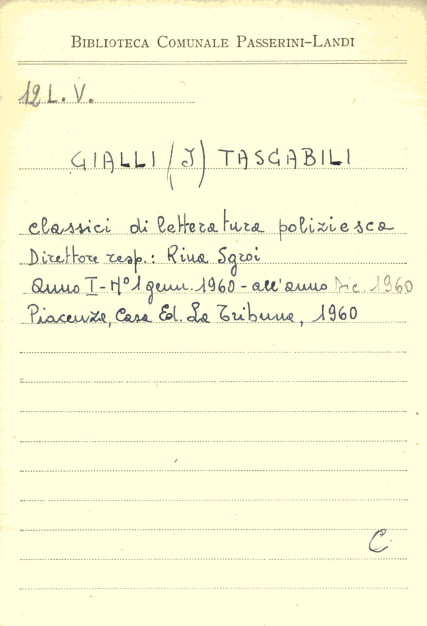 BIBLIOTECA COMUNALE PASSERINI-LANDI
12 L. V.
GIALLI (I) TASCABILI
classici di letteratura poliziesca
Direttore resp.: Rina Sgroi
Anno I - N° 1 genn. 1960 - all'anno Dic. 1960
Piacenza, Casa Ed. La Tribuna, 1960
C